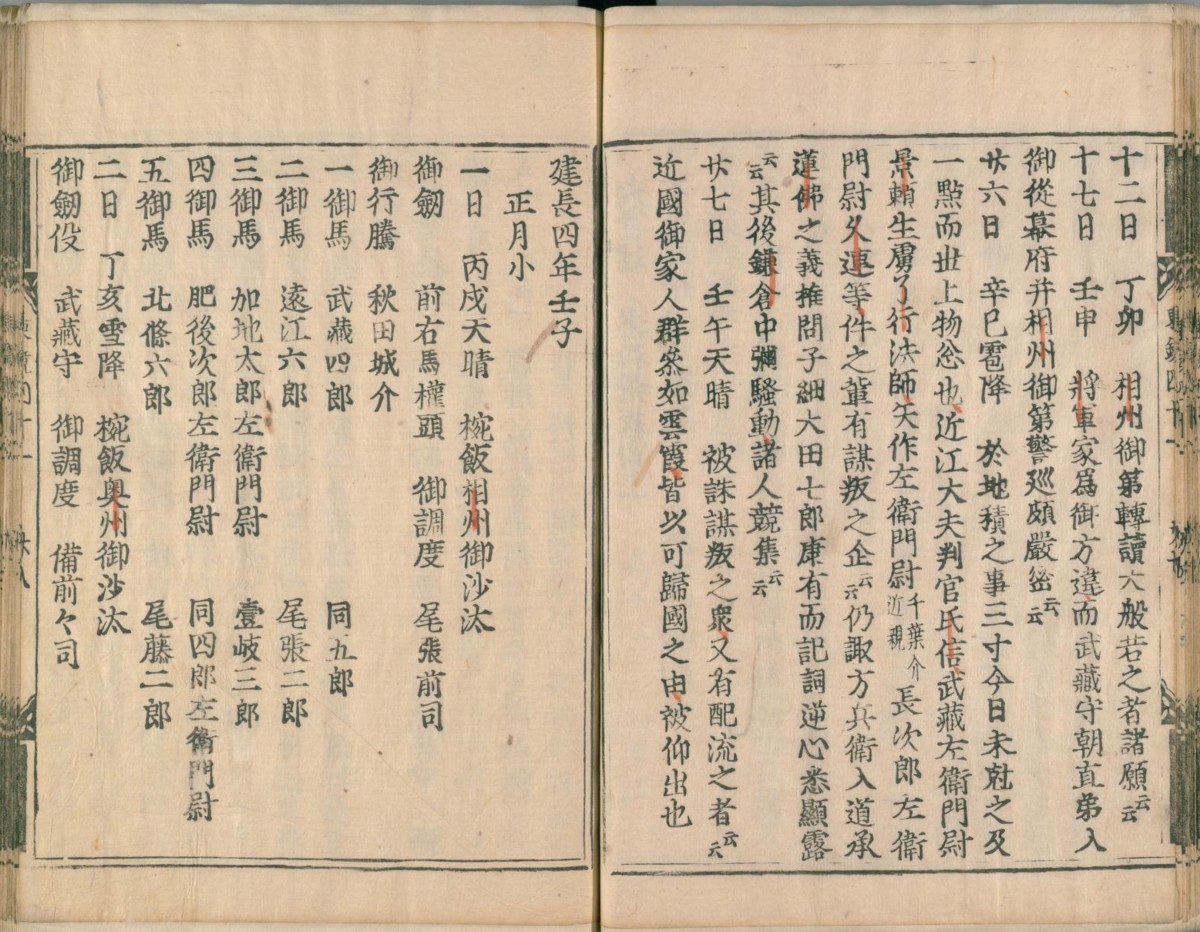 十二日　丁卯　相州御第轉讀大般若之者諸願云云
十七日　壬申　將軍家爲御方違而武藏守朝直弟入
御從幕府并相州御第警巡頗嚴密云云
廿六日　辛巳雹降　於地積之事三寸今日未尅之及
一點而世上物忩也近江大夫判官氏信武藏左衛門尉
景頼生虜了行法師矢作左衛門尉千葉介近親長次郎左衛
門尉久連等件之輩有謀叛之企云云仍諏方兵衛入道承
蓮佛之義推問子細大田七郎康有而記詞逆心悉顯露
云云其後鎌倉中彌騒動諸人競集云云
廿七日　壬午天晴　被誅謀叛之衆又有配流之者云云
近國御家人群參如雲霞皆以可歸國之由被仰出也
建長四年壬子
正月小
一日　丙戌天晴　椀飯相州御沙汰
御劔　前右馬權頭　御調度　尾張前司
御行騰　秋田城介
一御馬　武藏四郎　同五郎
二御馬　遠江六郎　尾張二郎
三御馬　加地太郎左衛門尉　壹岐三郎
四御馬　肥後次郎左衛門尉　同四郎左衛門尉
五御馬　北條六郎　尾藤二郎
二日　丁亥雪降　椀飯奥州御沙汰
御劔役　武藏守　御調度　備前々司